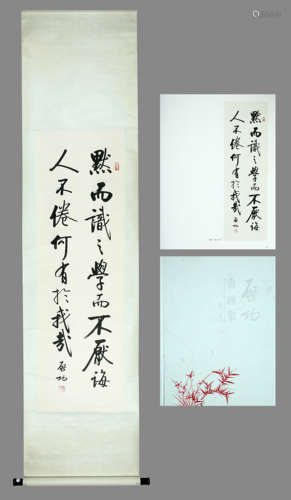 默而識之學而不厭誨
人不倦何有於我哉
启功
默而識之學而不厭誨
人不倦何有於我哉
启功
启功